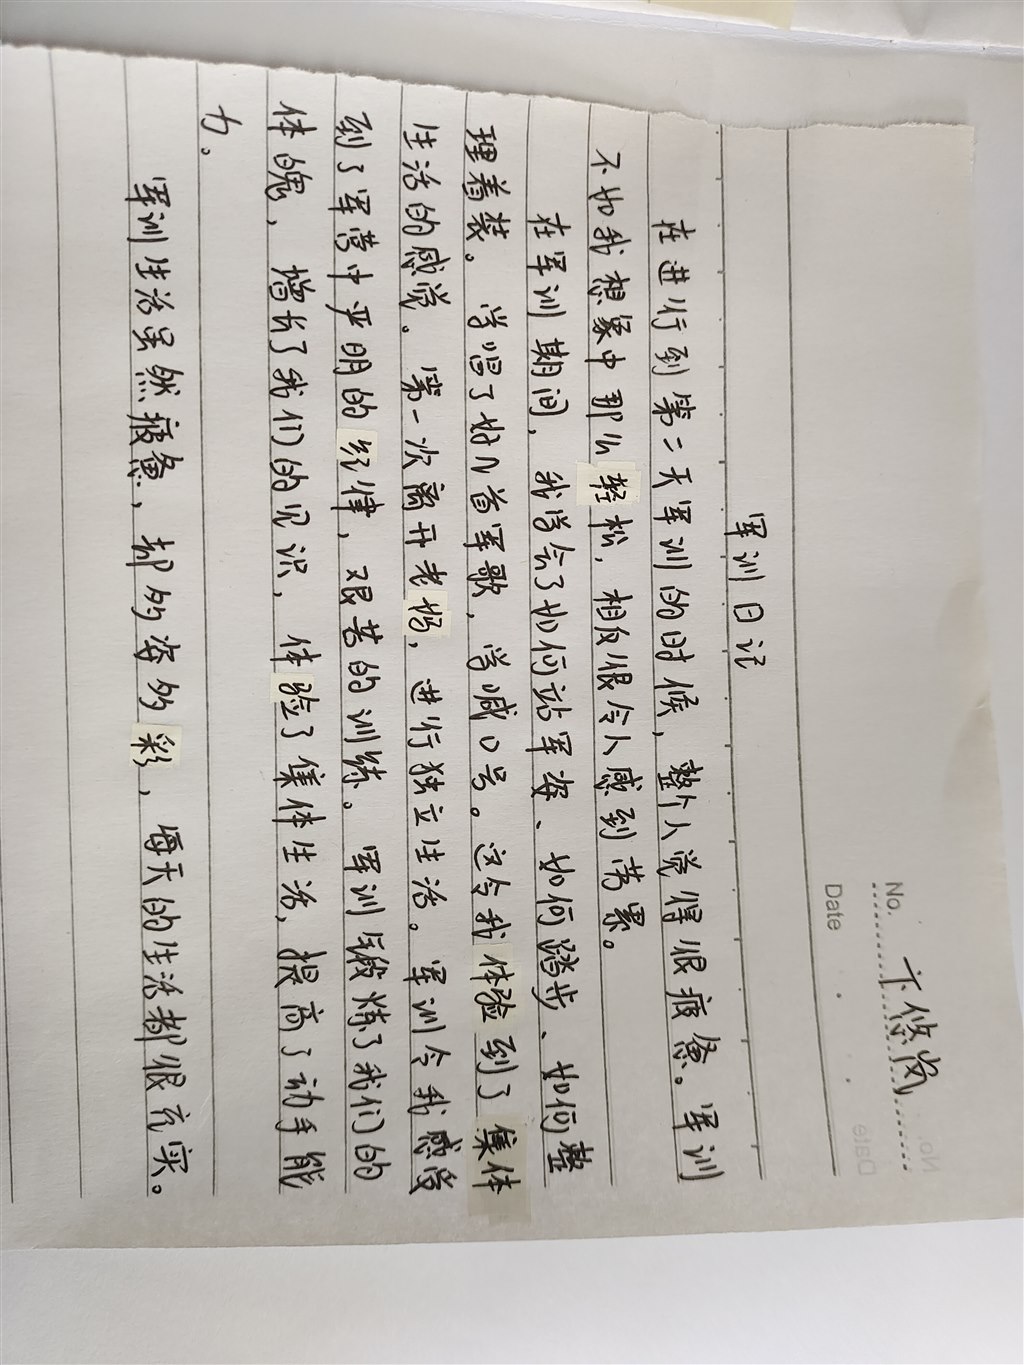 No. 卞悠岚
Date
军训日记
在进行到第二天军训的时候，整个人觉得很疲惫。军训
不如我想象中那么轻松，相反很令人感到劳累。
在军训期间，我学会了如何站军姿、如何踏步、如何整
理着装。学唱了好几首军歌，学喊口号。这令我体验到了集体
生活的感觉。第一次离开老妈，进行独立生活。军训令我感受
到了军营中严明的纪律，艰苦的训练。军训锻炼了我们的
体魄，增长了我们的见识，体验了集体生活，提高了动手能
力。
军训生活虽然疲惫，却多姿多彩，每天的生活都很充实。